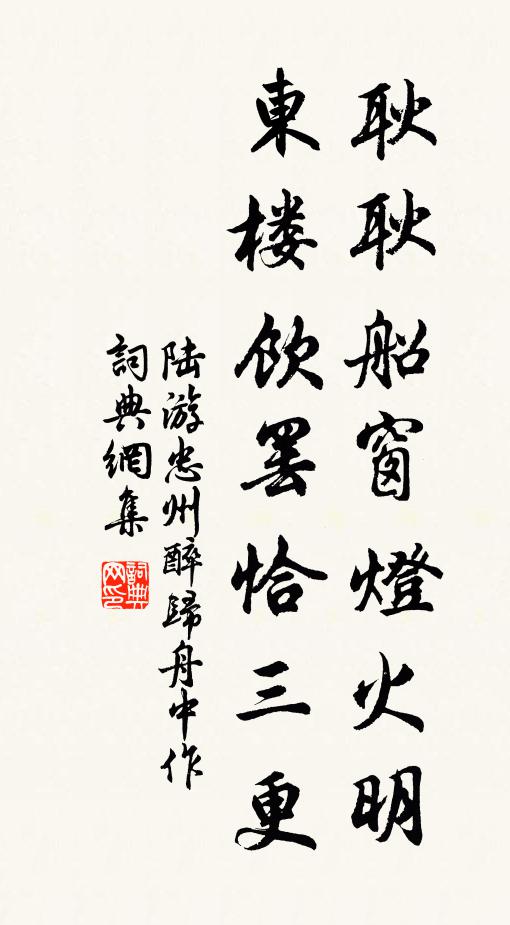 耿耿船窗燈火明
東楼飲罢恰三更
陆游忠州醉歸舟中作
詞典網集
詞典网印